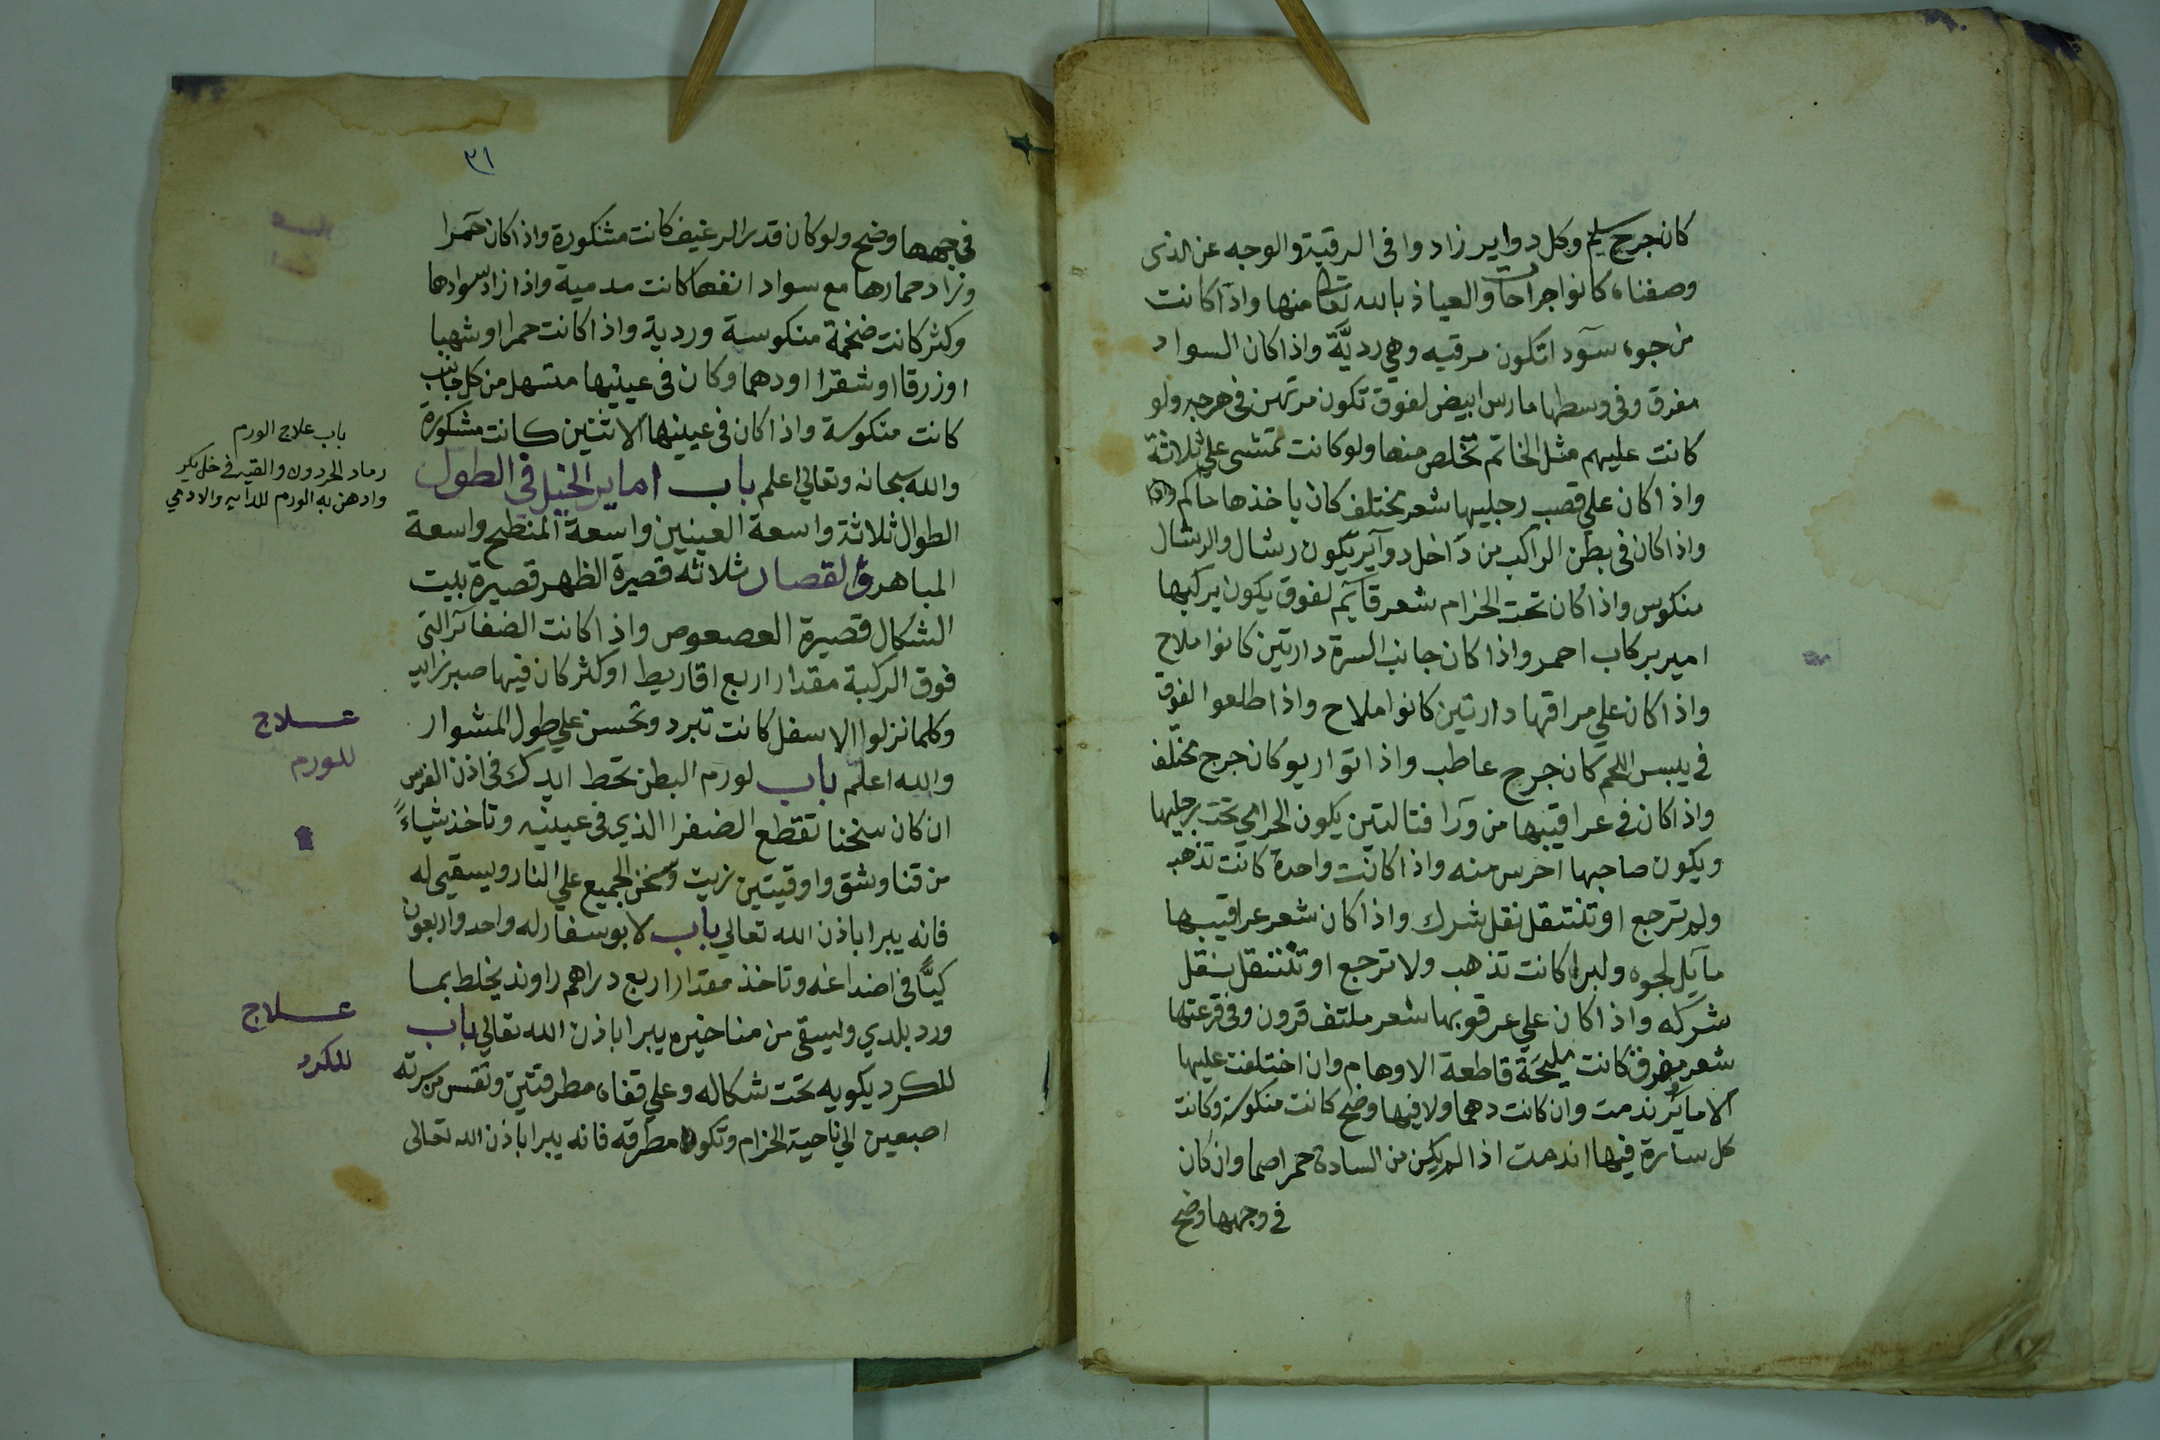 كان جرح سليم وكل دواير زادوا في الرقبة والوجه عن الذي
وصفناه كانوا جراحات والعياذ بالله تعالى منها واذا كانت
من جوه سودا تكون مرقيه وهي رديّة واذا كان السواد
مفرق وفي وسطها مارس ابيض لفوق تكون مرتهن في هرجه ولو
كانت عليهم مثل الخاتم تخلص منها ولو كانت تمشى علي ثلاثة
واذا كان علي قصب رجليها شعر مختلف كان ياخذها حاكم
واذا كان في بطن الراكب من داخل دواير تكون رشال والرشال
منكوس واذا كان تحت الحزام شعر قايم لفوق يكون يركبها
امير بركاب احمر واذا كان جانب السرة دارتين كانوا ملاح
واذا كان علي مراقها دارتين كانوا ملاح واذا طلعوا لفوق
في يبس اللحم كان جرح عاطب واذا تواريو كان جرح مختلف
واذا كان في عراقيبها من ورا فتالتين يكون الحرامي تحت رجليها
ويكون صاحبها اخرس منه واذا كانت واحدة كانت تذهب
ولم ترجع او تنتقل نقل شرك واذا كان شعر عراقيبها
مايل لجوه ولبرا كانت تذهب ولا ترجع او تنتقل بنقل
شركه واذا كان علي عرقوبها شعر ملتف قرون وفي قرعتها
شعر مفرق كانت مليحة قاطعة الاوهام وان اختلفت عليها
الاماير ندمت وان كانت دهما ولا فيها وضح كانت منكوسة وكانت
كل سارة فيها اندمت اذا لم يكن من السادة حمرا صما وان كان
في وجهها وضح
٣١
في جبهها وضح ولو كان قدر الرغيف كانت مشكورة واذا كان حمرا
وزاد حمارها مع سواد انفها كانت مدمية واذا زاد سوادها
وكثر كانت ضخمة منكوسة وردية واذا كانت حمرا او شهبا
او زرقا او شقرا او دهما وكان في عينيها متسهل من كل جانب
كانت منكوسة واذا كان في عينيها الاثنين كانت مشكورة
والله سبحانه وتعالي اعلم باب اماير الخيل في الطول
الطوال ثلاثة واسعة العينين واسعة المنطح واسعة
المباهر والقصار ثلاثه قصيرة الظهر قصيرة بيت
الشكال قصيرة العصعوص واذا كانت الضفاير التي
فوق الركبة مقدار اربع اقاريط او كثر كان فيها صبر زايد
وكلما نزلوا الاسفل كانت تبرد وتحسن علي طول المشوار
والله اعلم باب لورم البطن تحط ايدك في اذن الفرس
ان كان سخنا تقطع الضفرا الذي في عينيه وتاخذ شياءً
من قنا وشق واوقيتين زيت وتسخن الجميع علي النار ويسقي له
فانه يبرا باذن الله تعالي باب لابو سفار له واحد واربعون
كيًّا في اضداغه وتاخذ مقدار اربع دراهم راوند يخلط بما
ورد بلدي وليسقى من مناخيره يبرا باذن الله تعالي باب
للكرد يكويه تحت شكاله وعلي قفاه مطرقتين وتقس من سرته
اصبعين الي ناحية الحزام وتكون مطرقه فانه يبرا باذن الله تعالى
باب علاج الورم
رماد الحردون والقيه في خل بكر
وادهن به الورم للدابه والادمي
عــلاج
للورم
عــلاج
للكرد